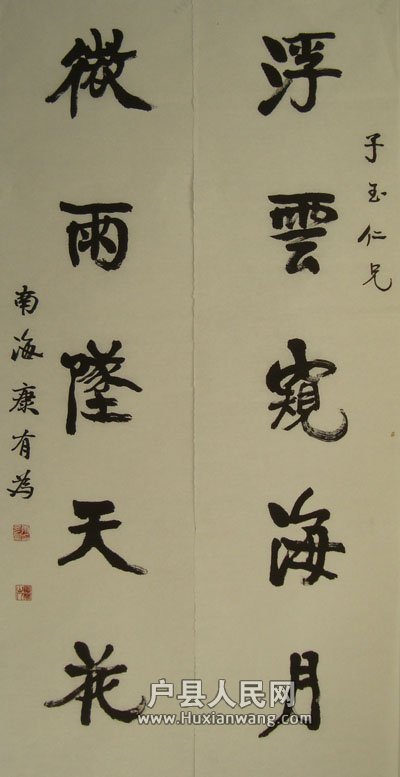 浮雲窺海月
子玉仁兄
微雨墜天花
南海康有為
户县人民网
www.Huxianwang.com